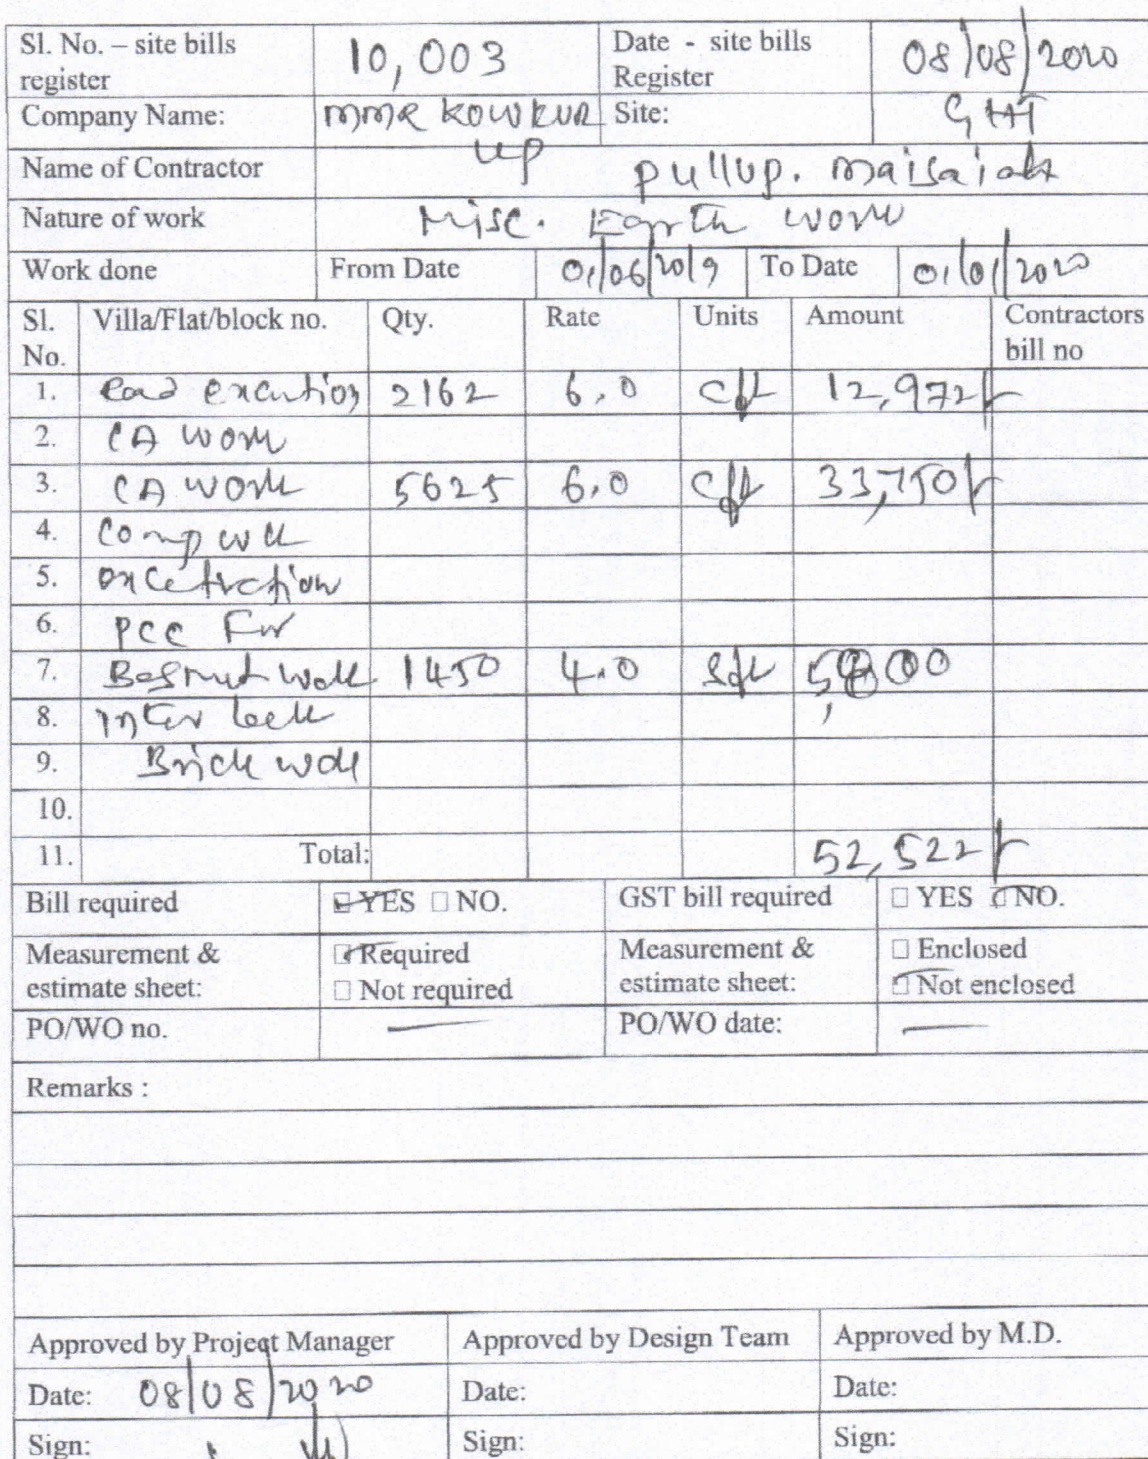 Sl. No. – site bills register 10,003 Date - site bills Register 08/08/2020
Company Name: MMR KOWKUR LLP Site: GHT
Name of Contractor pullup. maisaiah
Nature of work Misc. Earth work
Work done From Date 01/06/2019 To Date 01/01/2020
Sl. No. Villa/Flat/block no. Qty. Rate Units Amount Contractors bill no
1. 2162 6.0 cft 12,972/-
2. CA work
3. CA work 5625 6.0 cft 33,750/-
4. comp
5.
6. PCC For
7. 1450 4.0 sft 5,800
8. inter lock
9. Brick
10.
11. Total: 52,522/-
Bill required YES NO. GST bill required YES NO.
Measurement & estimate sheet: Required Not required Measurement & estimate sheet: Enclosed Not enclosed
PO/WO no. — PO/WO date: —
Remarks :
Approved by Project Manager Approved by Design Team Approved by M.D.
Date: 08/08/2020 Date: Date:
Sign: Sign: Sign: